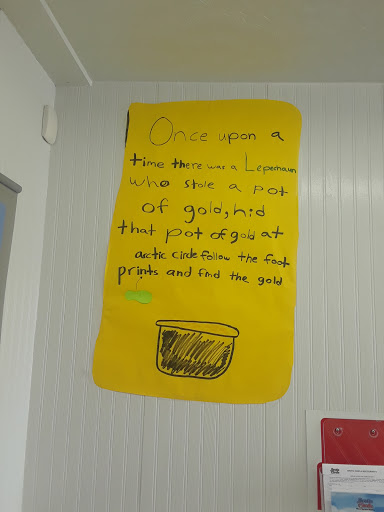 Once upon a
time there was a Leperhaun
who stole a pot
of gold, hid
that pot of gold at
arctic circle follow the foot
prints and find the gold